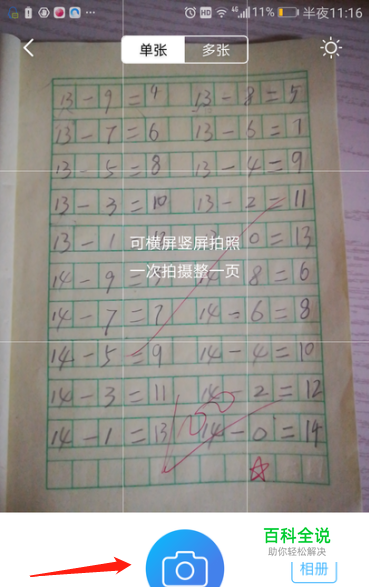 HD 4G 11% 半夜11:16
单张 多张
13-9=4 13-8=5
13-7=6 13-6=7
13-5=8 13-4=9
13-3=10 13-2=11
13-1= 0=13
可横屏竖屏拍照
一次拍摄整一页
14-9= 8=6
14-7=7 14-6=8
14-5=9 14-4=10
14-3=11 14-2=12
14-1=13 14-0=14
百科全说
助你轻松解决
相册